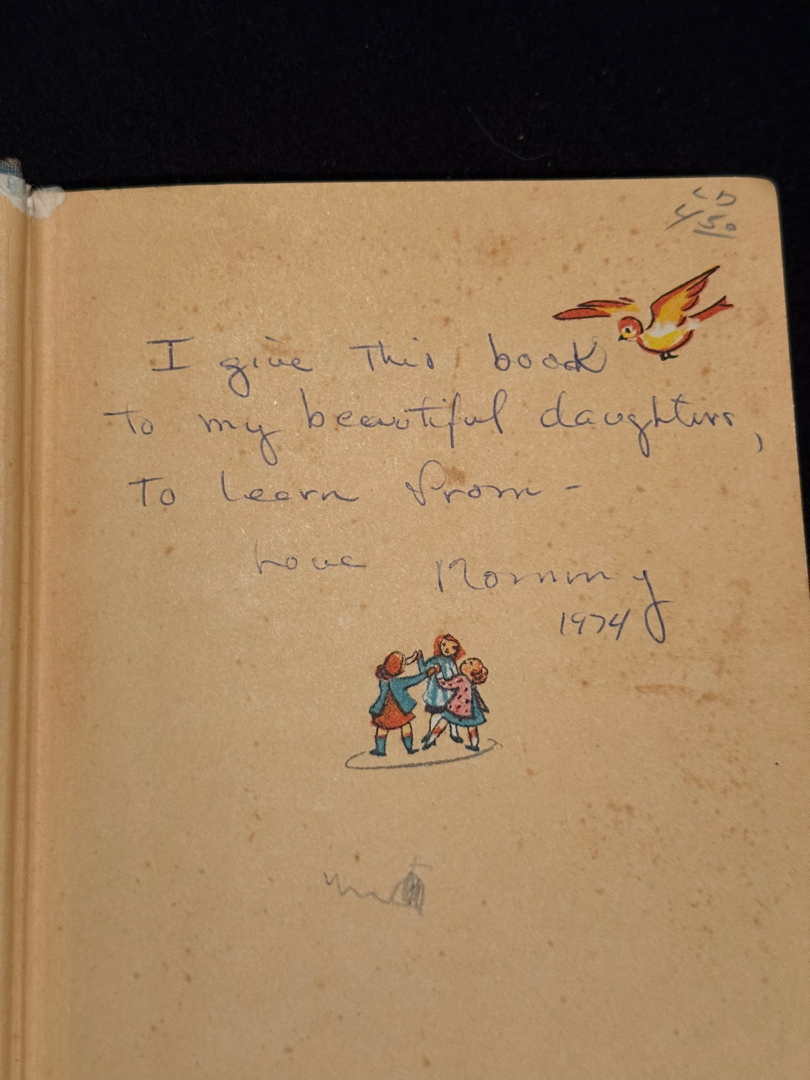 450
I give this book
to my beautiful daughters,
to learn from -
Love Mommy
1974